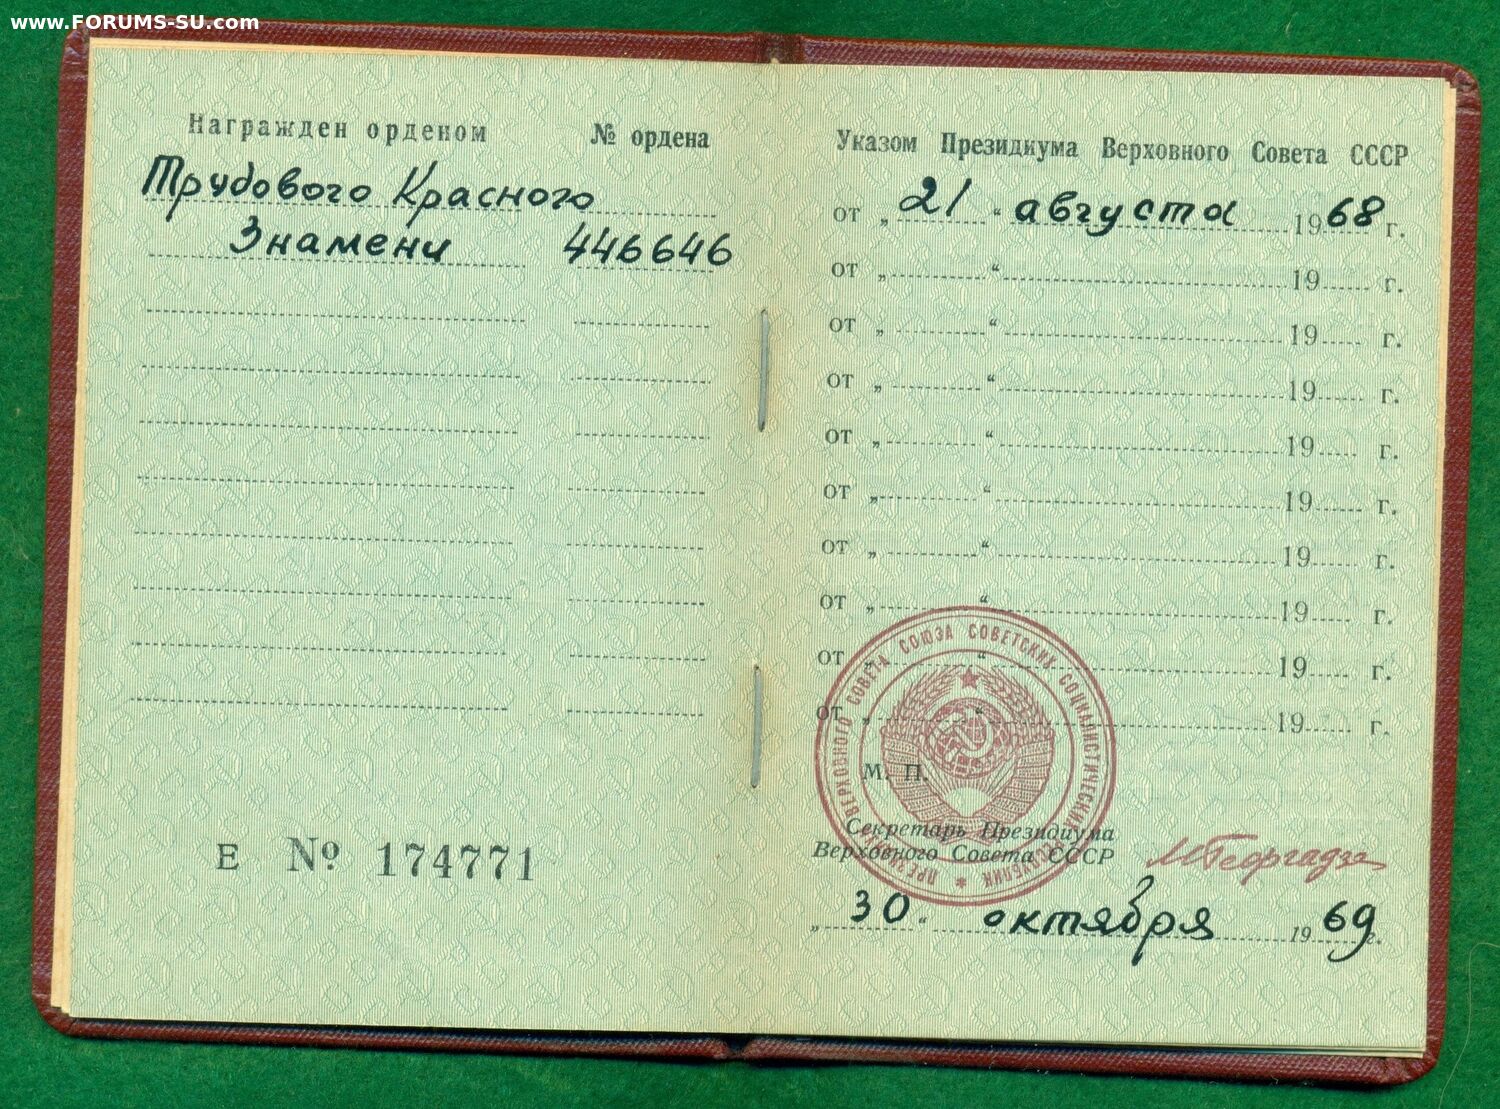 www.FORUMS-SU.com
Награжден орденом № ордена
Трудового Красного
Знамени 446646
Е № 174771
Указом Президиума Верховного Совета СССР
от „ 21 “ августа 1968 г.
от „ “ 19 г.
от „ “ 19 г.
от „ “ 19 г.
от „ “ 19 г.
от „ “ 19 г.
от „ “ 19 г.
от „ “ 19 г.
от „ “ 19 г.
от „ “ 19 г.
ПРЕЗИДИУМ ВЕРХОВНОГО СОВЕТА СОЮЗА СОВЕТСКИХ СОЦИАЛИСТИЧЕСКИХ РЕСПУБЛИК
М. П.
Секретарь Президиума
Верховного Совета СССР МГеоргадзе
„ 30 “ октября 1969 г.